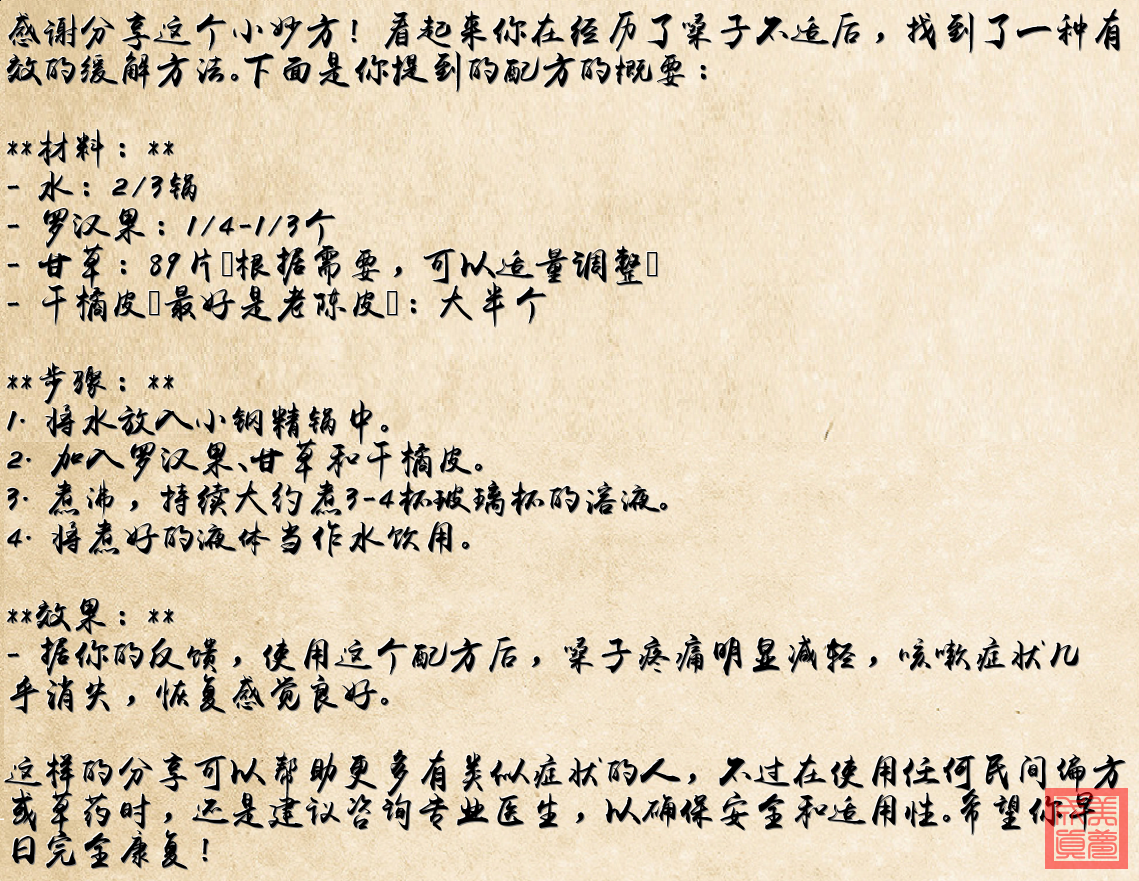 感谢分享这个小妙方！看起来你在经历了嗓子不适后，找到了一种有
效的缓解方法。下面是你提到的配方的概要：
**材料：**
- 水：2/3锅
- 罗汉果：1/4-1/3个
- 甘草：89片▯根据需要，可以适量调整▯
- 干橘皮▯最好是老陈皮▯：大半个
**步骤：**
1. 将水放入小钢精锅中。
2. 加入罗汉果、甘草和干橘皮。
3. 煮沸，持续大约煮3-4杯玻璃杯的溶液。
4. 将煮好的液体当作水饮用。
**效果：**
- 据你的反馈，使用这个配方后，嗓子疼痛明显减轻，咳嗽症状几
乎消失，恢复感觉良好。
这样的分享可以帮助更多有类似症状的人，不过在使用任何民间偏方
或草药时，还是建议咨询专业医生，以确保安全和适用性。希望你早
日完全康复！